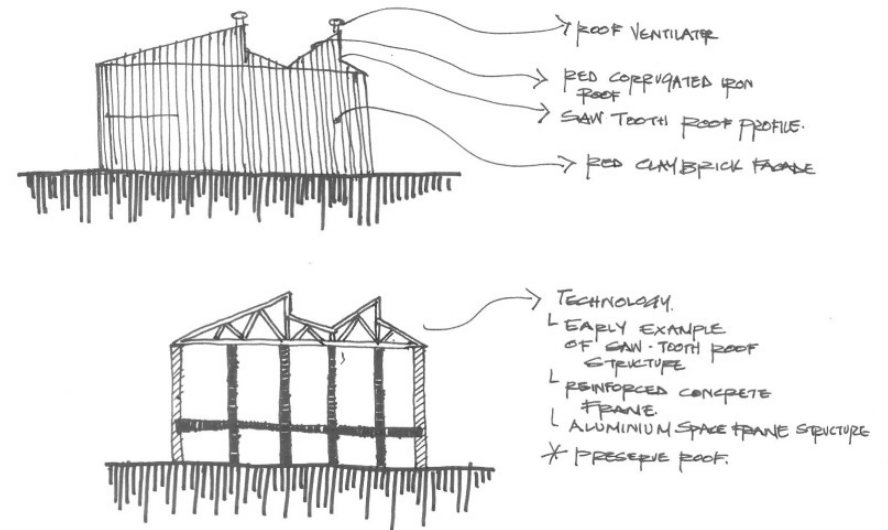 ROOF VENTILATER
RED CORRUGATED IRON
ROOF
SAW TOOTH ROOF PROFILE.
RED CLAY BRICK FACADE
TECHNOLOGY.
EARLY EXAMPLE
OF SAW-TOOTH ROOF
STRUCTURE
REINFORCED CONCRETE
FRAME.
ALUMINIUM SPACE FRAME STRUCTURE
* PRESERVE ROOF.